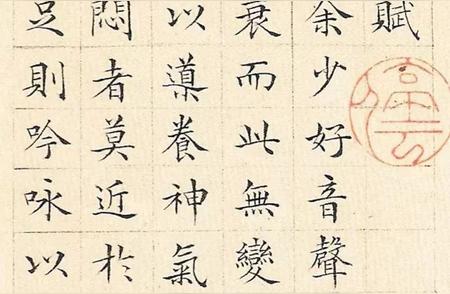 賦
余少好音聲
衰而此無變
以導養神氣
悶者莫近於
足則吟咏以